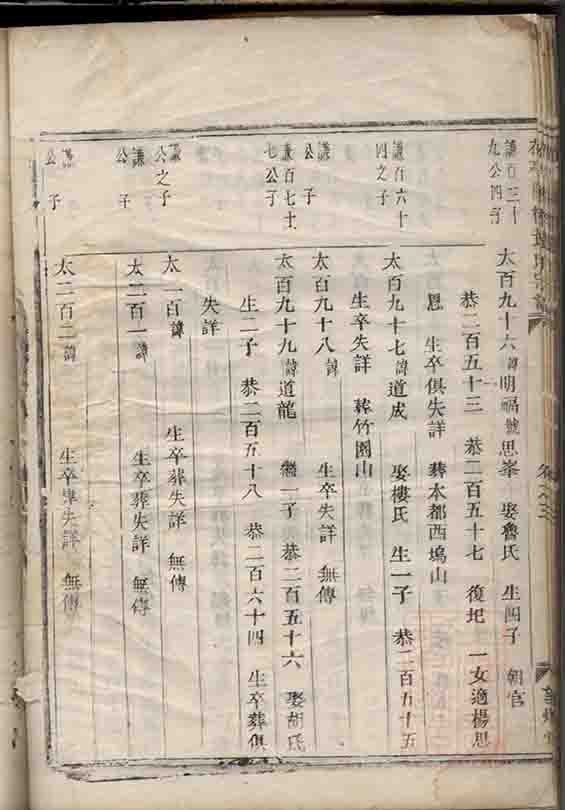 謙百三十
九公四子
太百九十六諱明福號思峯 娶魯氏 生四子 朝官
恭二百五十三 恭二百五十七 復圯 一女適楊思
恩 生卒俱失詳 葬本都西塢山
謙百六十
四之子
太百九十七諱道成 娶樓氏 生一子 恭二百五十五
生卒失詳 葬竹園山
謙
公 子
太百九十八諱 生卒失詳 無傳
謙百七十
七公子
太百九十九諱道龍 繼一子 恭二百五十六 娶胡氏
生二子 恭二百五十八 恭二百六十四 生卒葬俱
失詳
謙
公之子
太二百諱 生卒葬失詳 無傳
謙
公 子
太二百一諱 生卒葬失詳 無傳
謙
公 子
太二百二諱 生卒葬失詳 無傳